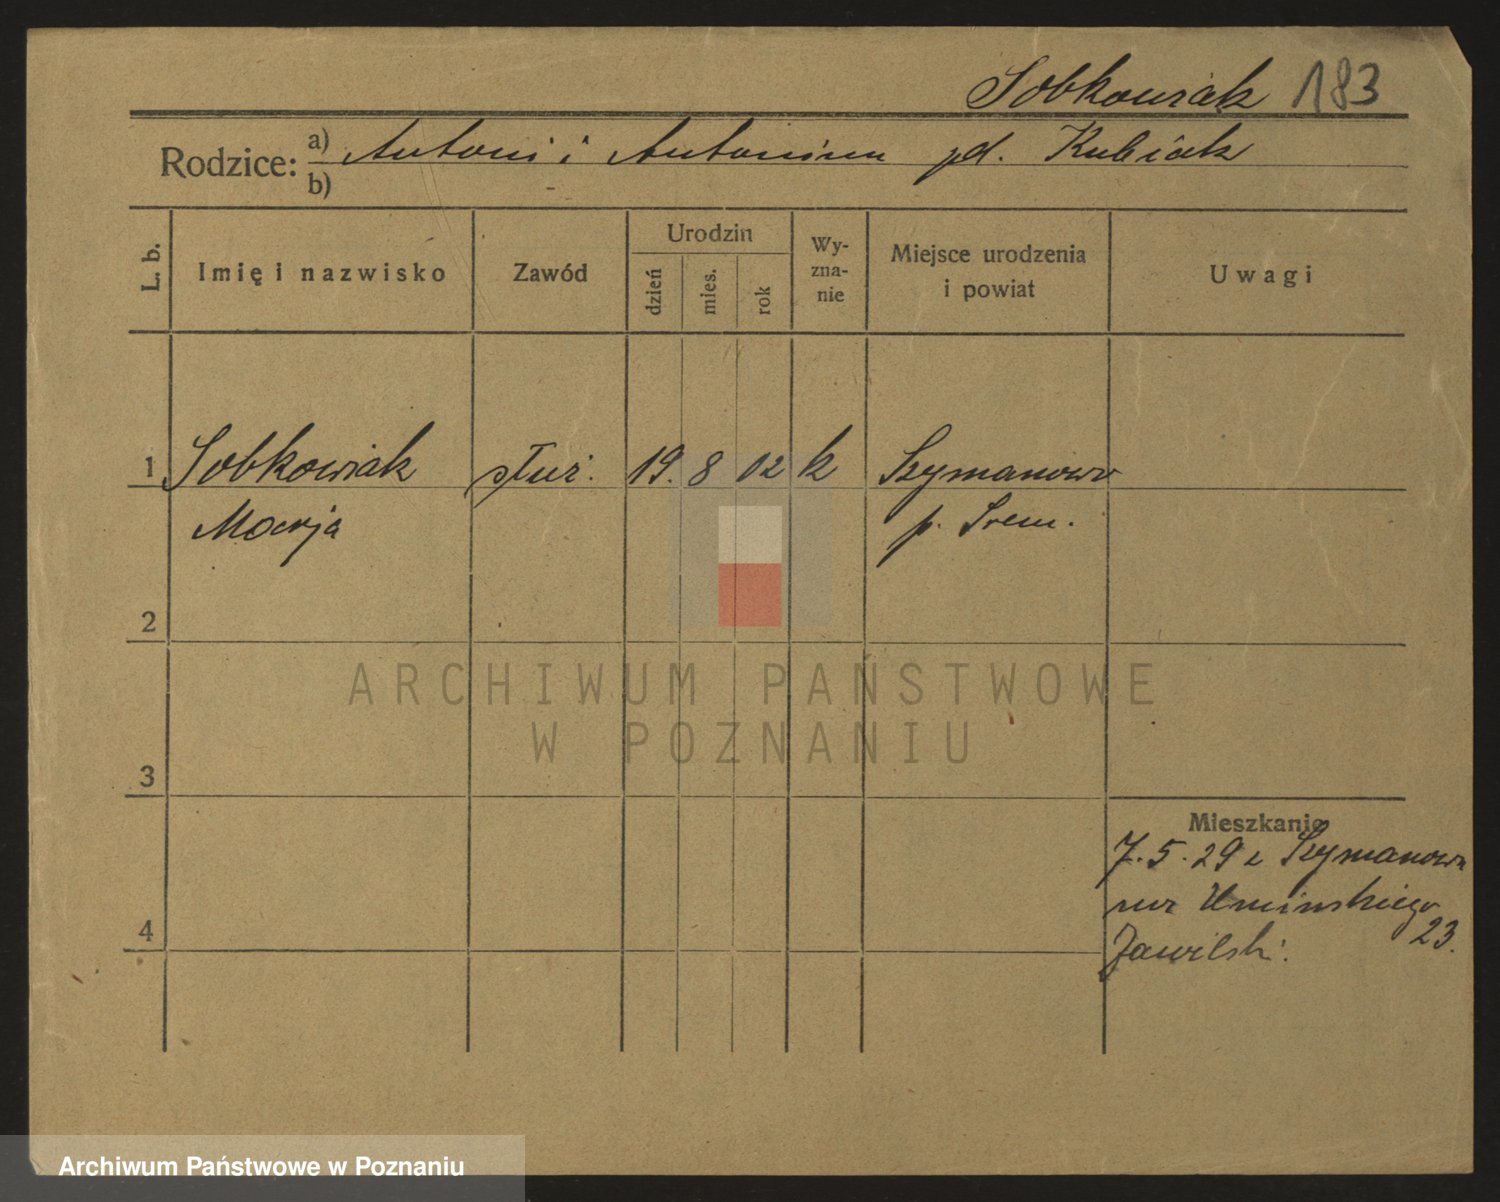 Sobkowiak 183
Rodzice: a) Antoni i Antonina zd. Kubiak
b)
L. b.
Imię i nazwisko
Zawód
Urodzin
dzień
mies.
rok
Wy-
zna-
nie
Miejsce urodzenia
i powiat
Uwagi
1 Sobkowiak służ. 19. 8 02 k Szymanowo
Marja p. Śrem.
2
3
4
Mieszkanie
7.5.29 z Szymanowa
na Umińskiego
23.
ARCHIWUM PAŃSTWOWE
W POZNANIU
Archiwum Państwowe w Poznaniu